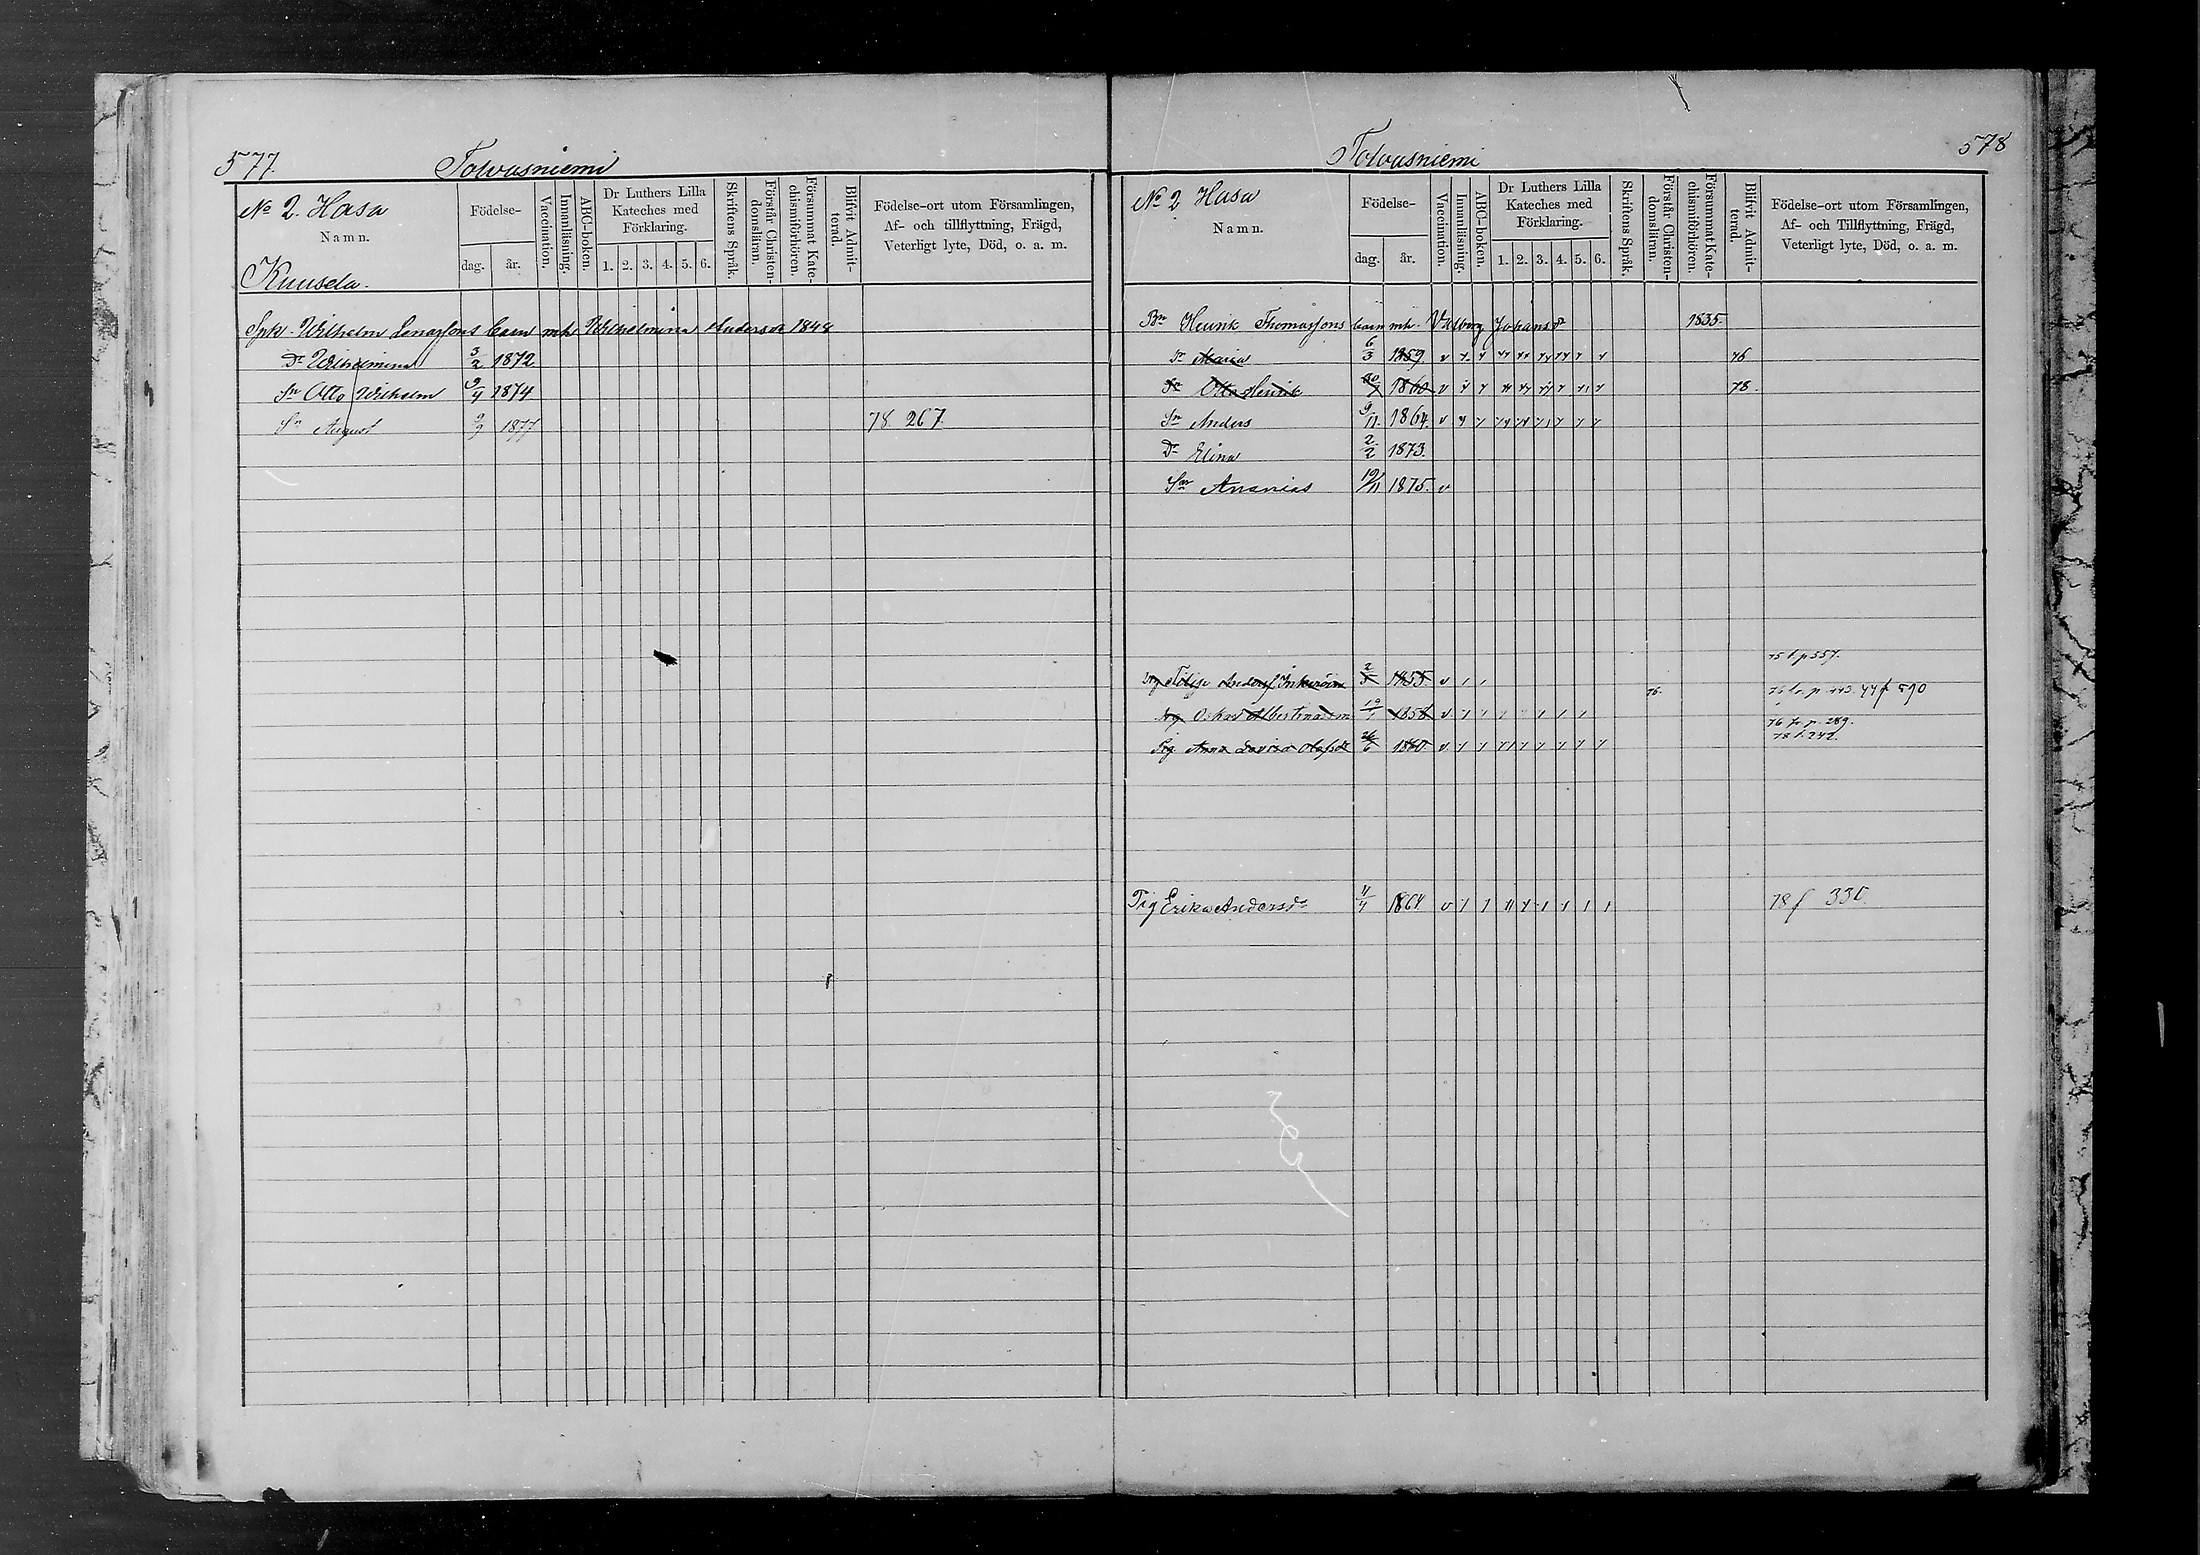 577.
Tolvasniemi
No 2. Hasa
Namn.
Kuusela.
Födelse-
dag. år.
Vaccination.
Innanläsning.
ABC-boken.
Dr Luthers Lilla
Kateches med
Förklaring.
1. 2. 3. 4. 5. 6.
Skriftens Språk.
Förstår Christen-
domsläran.
Försummat Kate-
chismiförhören.
Blifvit Admit-
terad.
Födelse-ort utom Församlingen,
Af- och tillflyttning, Frägd,
Veterligt lyte, Död, o. a. m.
Wilhelm barn mh Wilhelmina Andersdr 1848
Dr Wilhelmina 3/2 1872
Sn Otto Wilhelm 9/4 1874
Sn August 2/9 1877 78 267.
Tolvasniemi
578
No 2 Hasa
Namn.
Födelse-
dag. år.
Vaccination.
Innanläsning.
ABC-boken.
Dr Luthers Lilla
Kateches med
Förklaring.
1. 2. 3. 4. 5. 6.
Skriftens Språk.
Förstår Christen-
domsläran.
Försummat Kate-
chismiförhören.
Blifvit Admit-
terad.
Födelse-ort utom Församlingen,
Af- och Tillflyttning, Frägd,
Veterligt lyte, Död, o. a. m.
Bn Henrik Thomassons barn mh. Valborg Johansdr 1835.
Dr Maria 6/3 1859. v 76
Sn Otto Henrik 1860 v 78.
Sn Anders 9/11. 1864. v
Dr Elina 2/2 1873.
Sn Ananias 19/11 1875. v
75 f. p 557.
Anderss 1855 v
76. 76 fr. p. 443. 77 f 590
Oskar 19/1 1858 v
76 fr p. 289.
78 f. 242.
Pig Anna Lovisa Olofsdr 26/6 1860 v
Pig Erika Andersdr 11/4 1864 v 78 f 330.